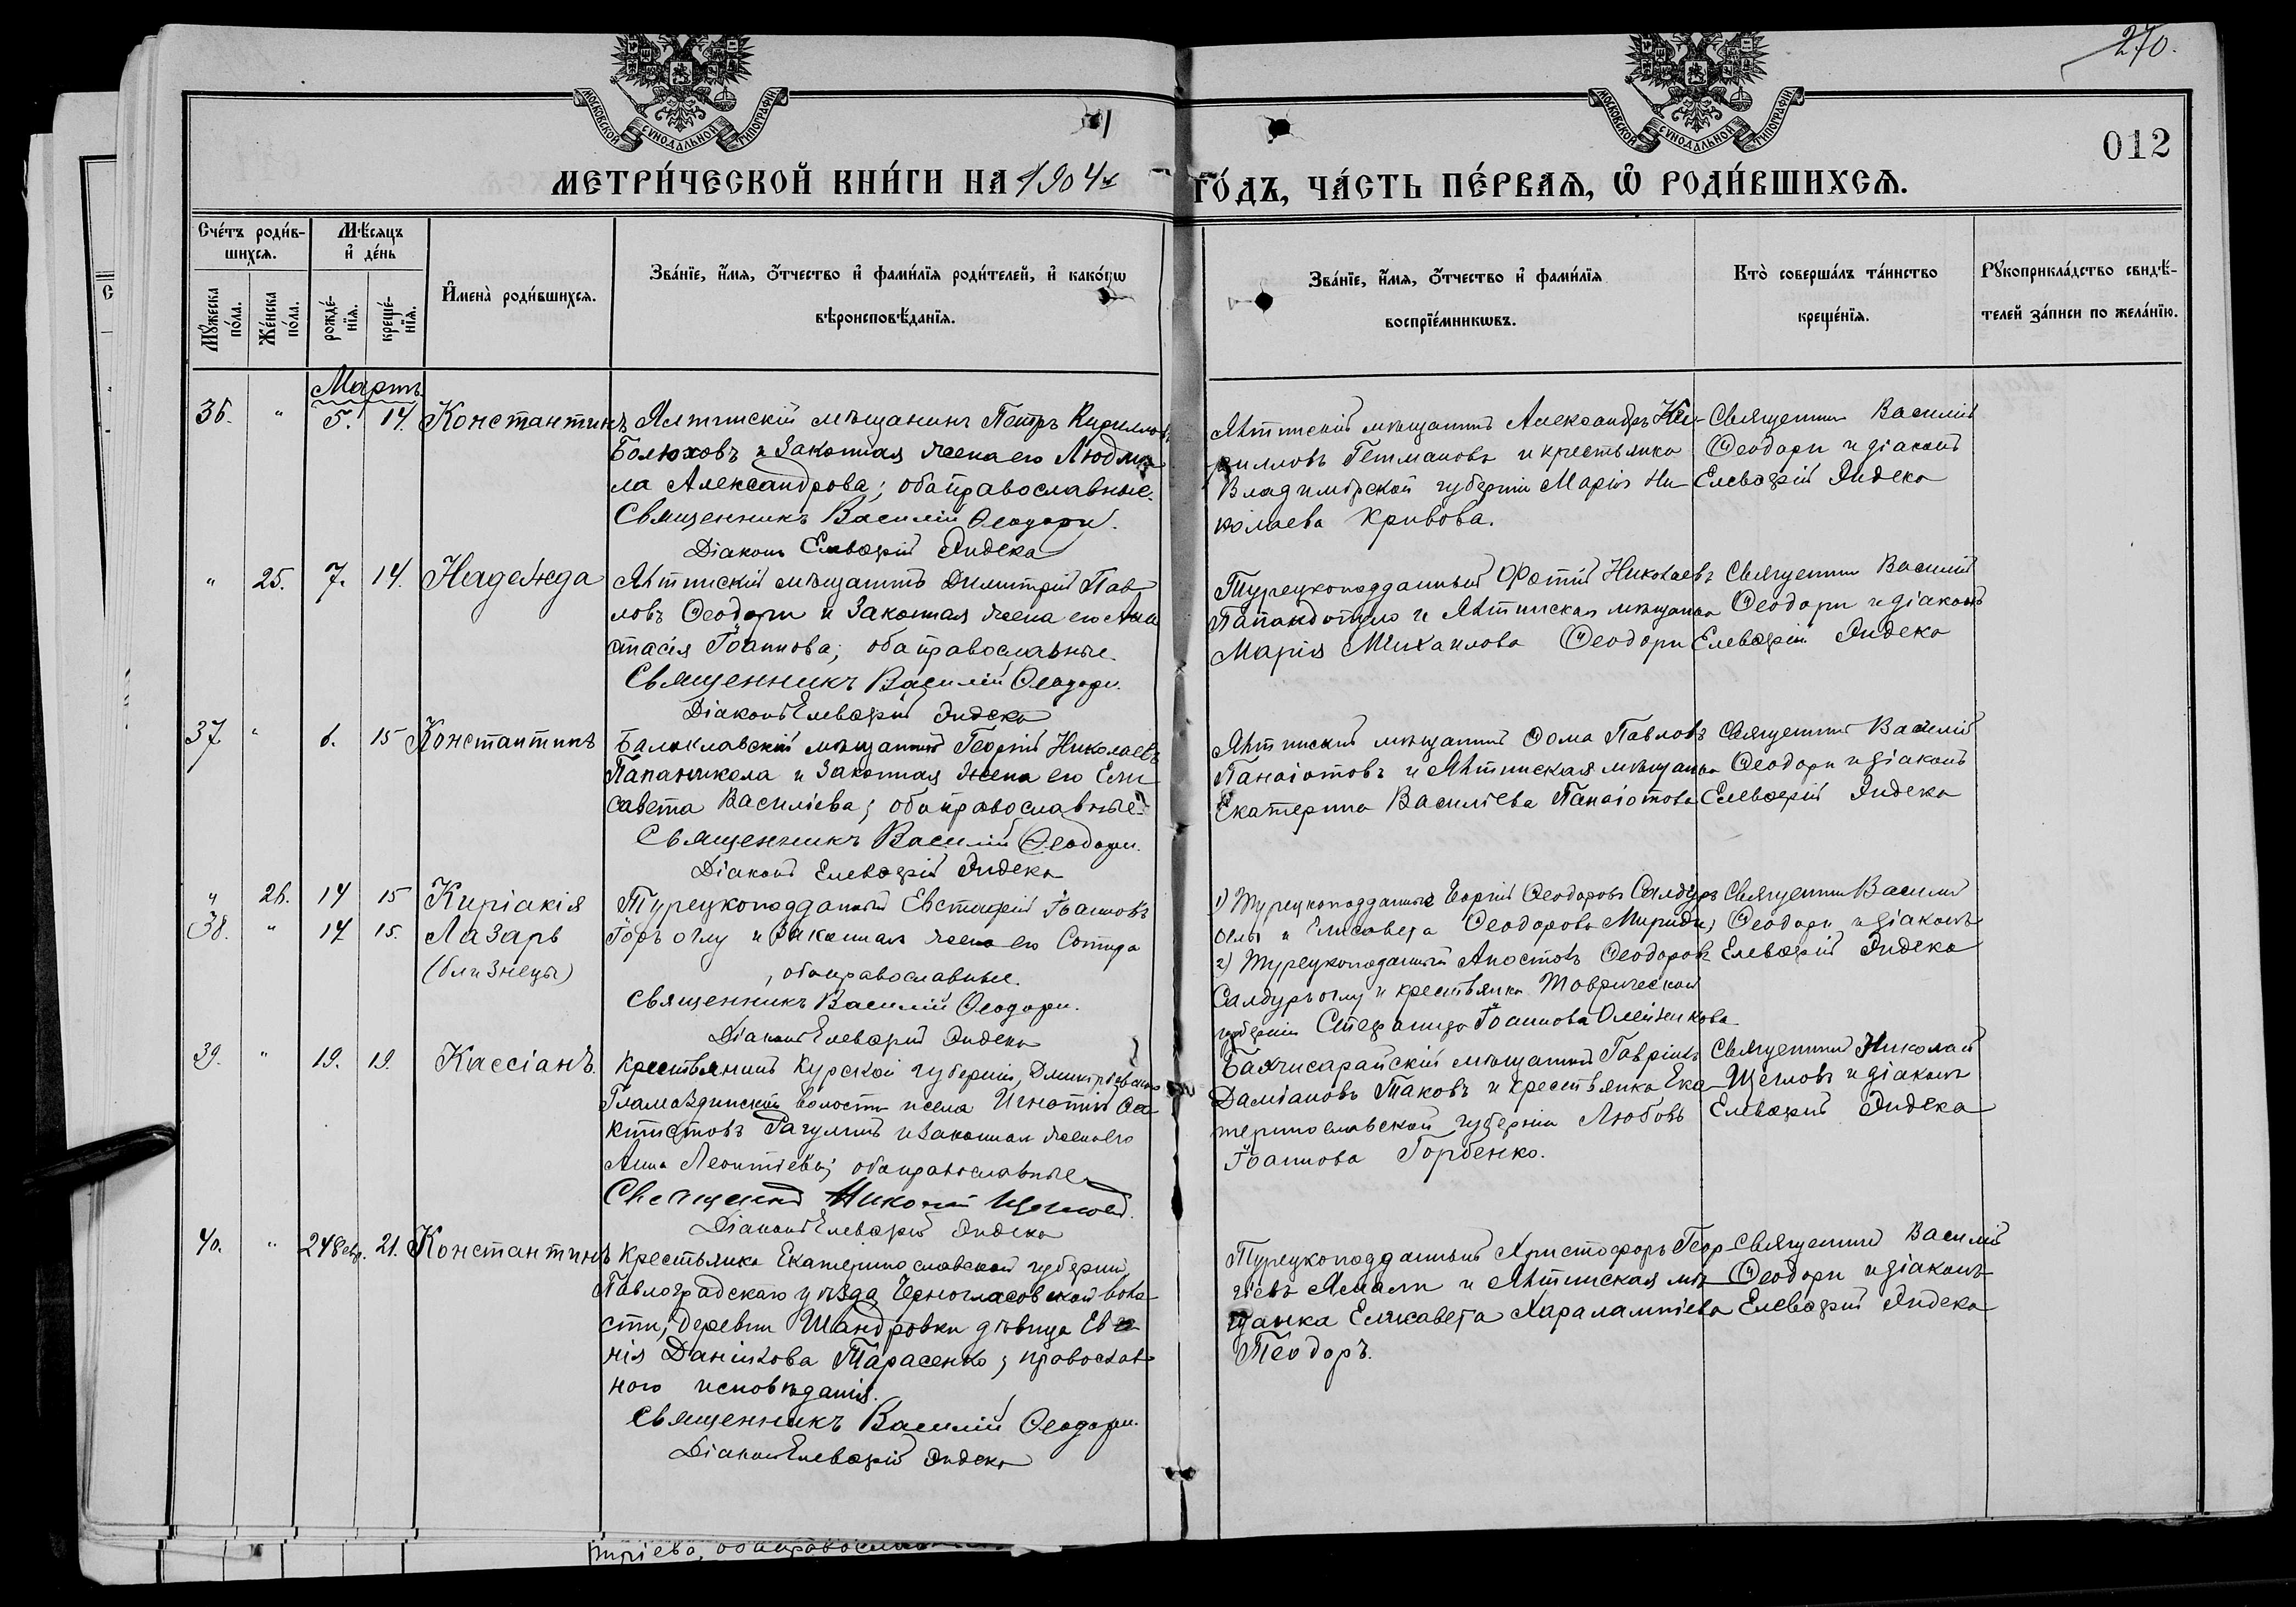 270.
012
МОСКОВСКОЙ СѴНОДАЛЬНОЙ ТИПОГРАФІИ
МОСКОВСКОЙ СѴНОДАЛЬНОЙ ТИПОГРАФІИ
МЕТРИ́ЧЕСКОЙ КНИ́ГИ НА 1904й ГО́ДЪ, ЧА́СТЬ ПЕ́РВАЯ, Ѿ РОДИ́ВШИХСЯ.
Сче́тъ роди́в-
шихся.
Мꙋ́жеска по́ла.
Же́нска по́ла.
Мѣ́сяцъ и҆ де́нь
рожде́-
нїя.
креще́-
нїя.
И҆мена̀ роди́вшихся.
Зва́нїе, и҆́мя, ѻ҆́тчество и҆ фами́лїя роди́телей, и҆ како́гѡ
вѣроисповѣ́данїя.
Зва́нїе, и҆́мя, ѻ҆́тчество и҆ фами́лїя
воспрїе́мникѡвъ.
Кто̀ соверша́лъ та́инство
креще́нїя.
Рꙋкоприкла́дство свидѣ́-
телей за́писи по жела́нїю.
Мартъ
36. " 5. 14. Константинъ
Ялтинскій мѣщанинъ Петръ Кирилловъ
Болюховъ и законная жена его Людми-
ла Александрова; оба православные.
Священникъ Василій Ѳеодори.
Діаконъ Елевѳерій Яндека
Ялтинскій мѣщанинъ Александръ Ки-
рилловъ Гетмановъ и крестьянка
Владимірской губерніи Марія Ни-
колаева Кривова.
Священникъ Василій
Ѳеодори и діаконъ
Елевѳерій Яндека
" 25. 7. 14. Надежда
Ялтинскій мѣщанинъ Димитрій Пав-
ловъ Ѳеодори и законная жена его Ана
стасія Іоаннова; оба православные.
Священникъ Василій Ѳеодори.
Діаконъ Елевѳерій Яндека
Турецкоподданный Фотій Николаевъ
Папандопуло и Ялтинская мѣщанка
Марія Михаилова Ѳеодори
Священникъ Василій
Ѳеодори и діаконъ
Елевѳерій Яндека
37. " 6. 15 Константинъ
Балаклавскій мѣщанинъ Георгій Николаевъ
Папаникола и законная жена его Ели-
савета Василіева; оба православные.
Священникъ Василій Ѳеодори.
Діаконъ Елевѳерій Яндека
Ялтинскій мѣщанинъ Ѳома Павловъ
Панаіотовъ и Ялтинская мѣщанка
Екатерина Василіева Панаіотова
Священникъ Василій
Ѳеодори и діаконъ
Елевѳерій Яндека
" 26. 14 15 Киріакія
38. " 14 15. Лазарь
(близнецы)
Турецкоподданный Евстафій Іоанновъ
Горъ оглу и законная жена его Сотира
, оба православные.
Священникъ Василій Ѳеодори.
Діаконъ Елевѳерій Яндека
1) Турецкоподданные Георгій Ѳеодоровъ Салдуръ
оглы и Елисавета Ѳеодорова Мириди;
2) Турецкоподданный Апостолъ Ѳеодоровъ
Салдуръ оглу и крестьянка Таврической
губерніи Стефанида Іоаннова Олейникова
Священникъ Василій
Ѳеодори и діаконъ
Елевѳерій Яндека
39. " 19. 19. Кассіанъ
Крестьянинъ Курской губерніи, Дмитріевской
Гламаздинской волости и села Игнатій Ѳео
ктистовъ Рагулинъ и законная жена его
Анна Леонтіева; оба православные
Священникъ Николай Щегловъ.
Діаконъ Елевѳерій Яндека
Бахчисарайскій мѣщанинъ Гавріилъ
Даміановъ Таковъ и крестьянка Ека-
теринославской губерніи Любовь
Іоаннова Горбенко.
Священникъ Николай
Щегловъ и діаконъ
Елевѳерій Яндека
40. " 24 Февр. 21. Константинъ
Крестьянка Екатеринославской губерніи,
Павлоградскаго уѣзда Черногласовской воло
сти, деревни Шандровки дѣвица Евге
нія Даніилова Тарасенко; православ-
наго исповѣданія.
Священникъ Василій Ѳеодори.
Діаконъ Елевѳерій Яндека
Турецкоподданный Христофоръ Геор-
гіевъ Асмали и Ялтинская мѣ-
щанка Елисавета Харалампіева
Теодоръ.
Священникъ Василій
Ѳеодори и діаконъ
Елевѳерій Яндека